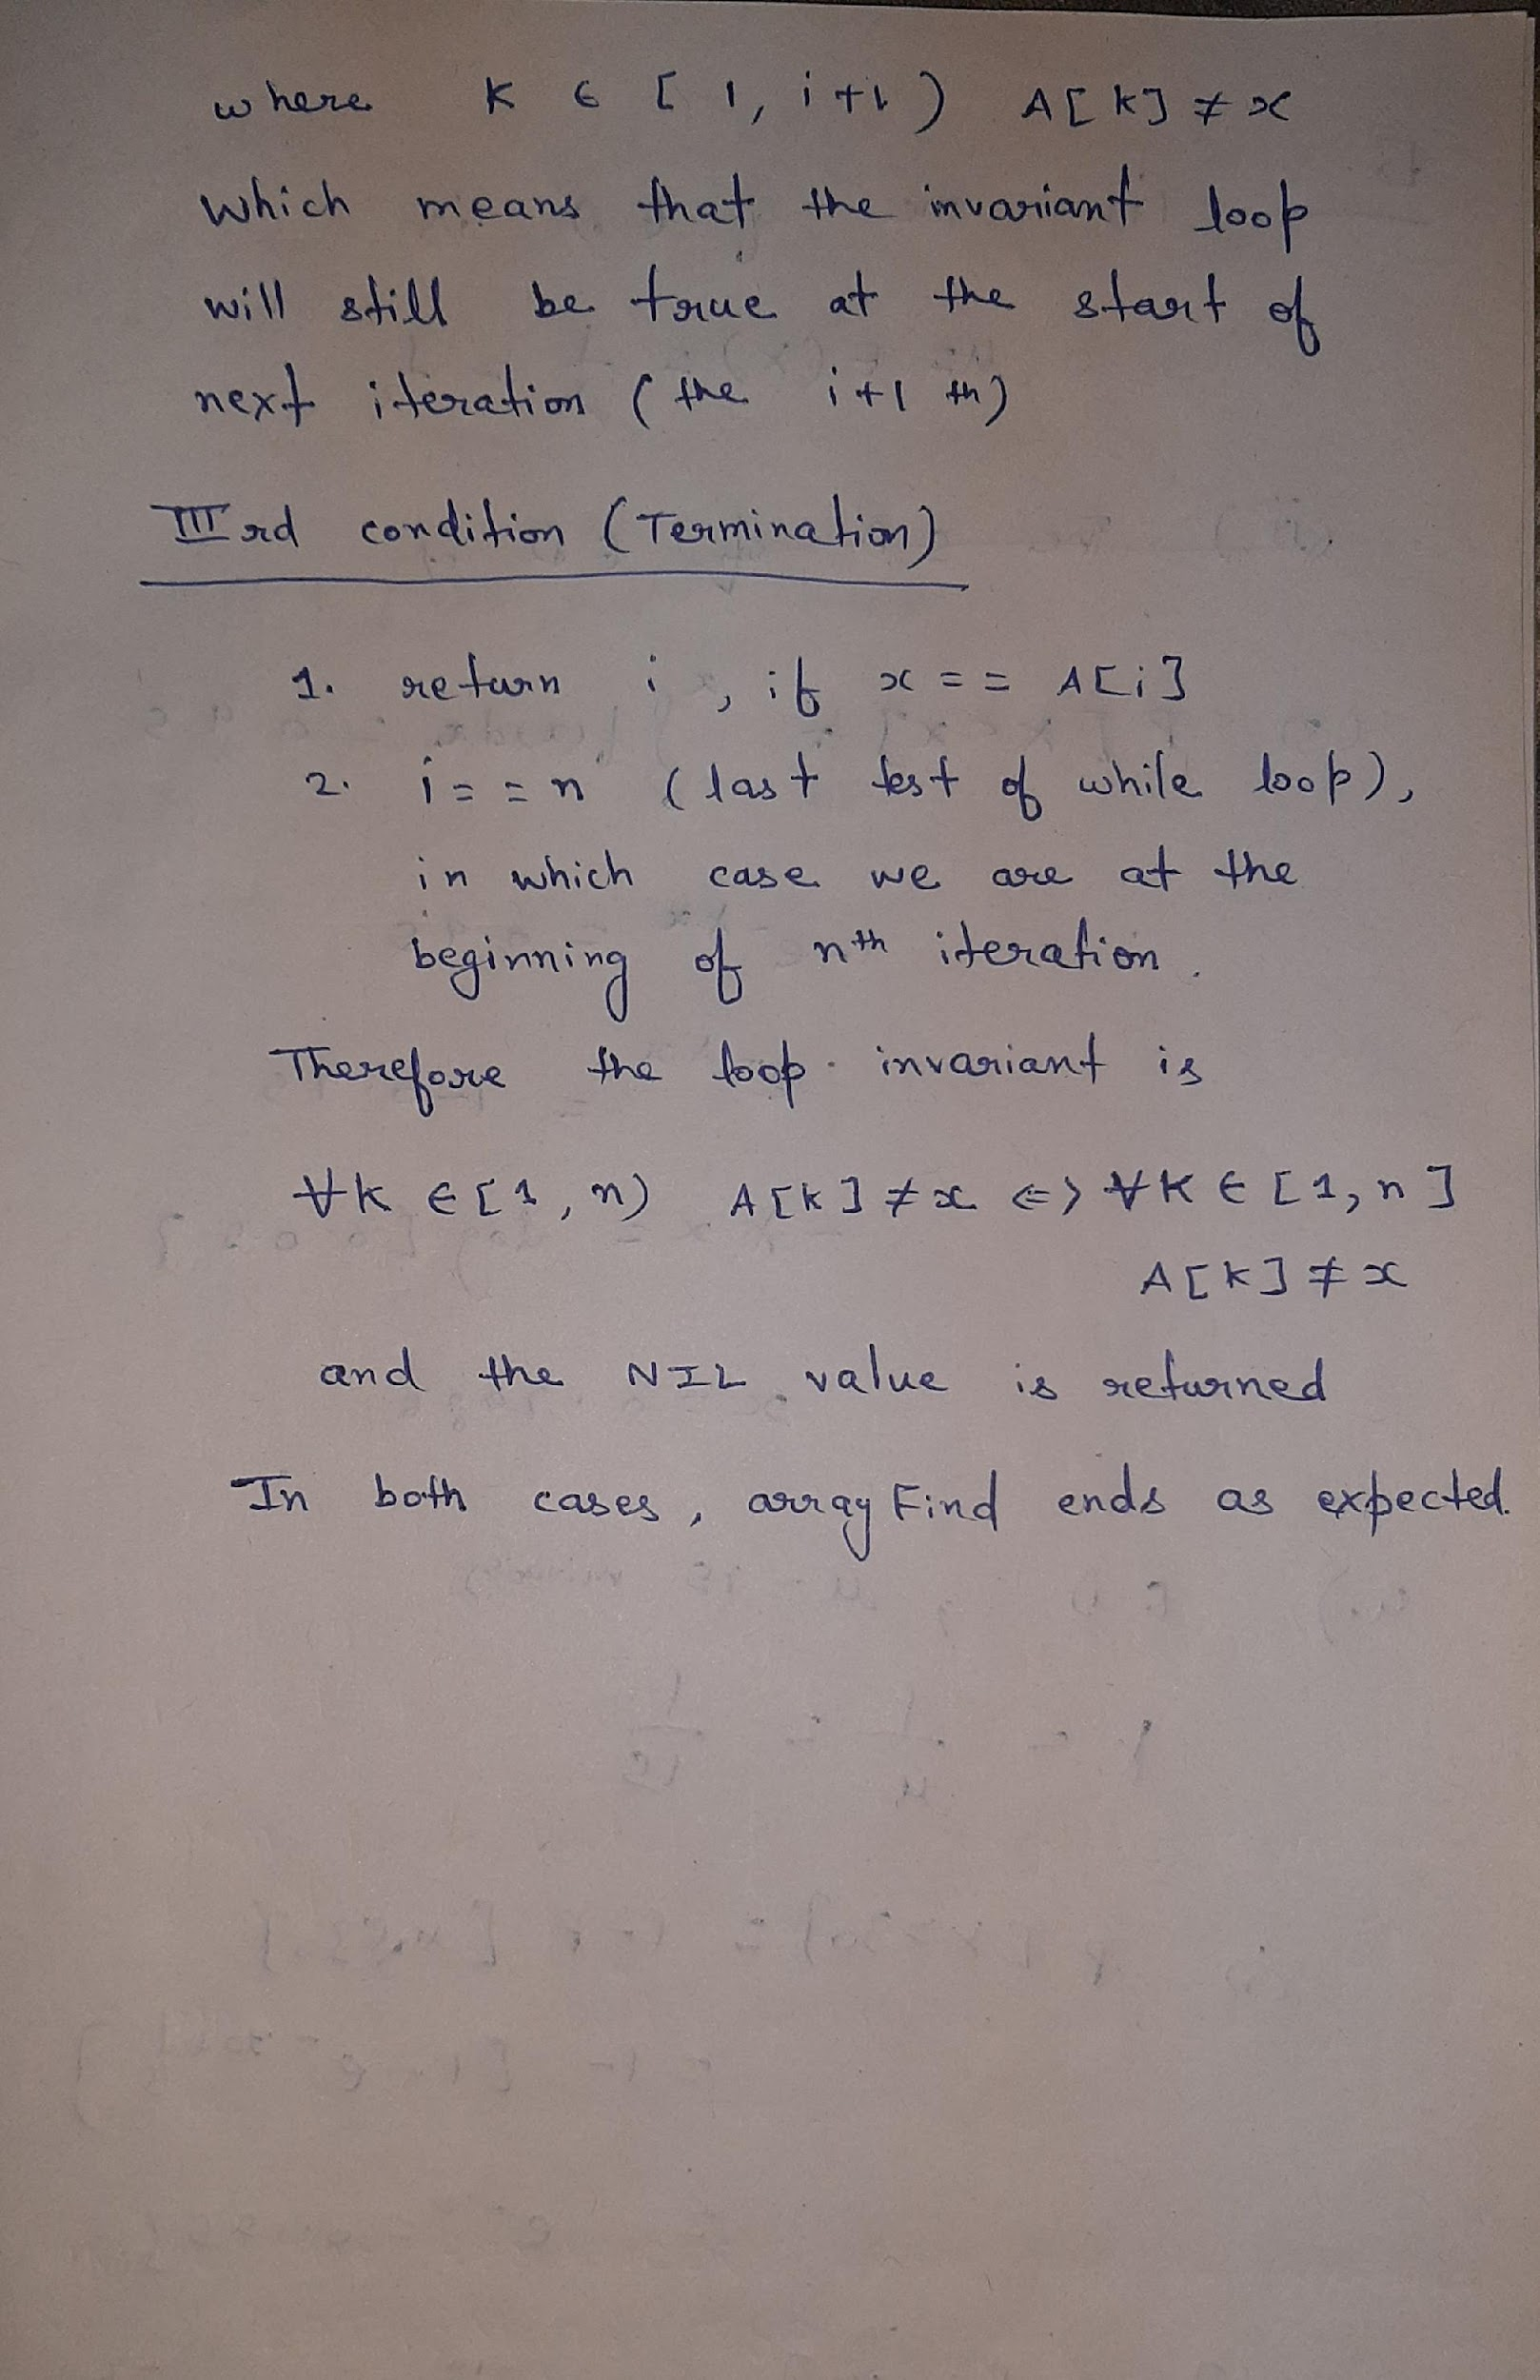 where K ∈ [ 1, i+1 ) A[K] ≠ x
which means that the invariant loop
will still be true at the start of
next iteration ( the i+1 th)
III rd condition (Termination)
1. return i , if x == A[i]
2. i == n (last test of while loop),
in which case we are at the
beginning of nth iteration.
Therefore the loop invariant is
∀K ∈ [1, n) A[K] ≠ x <=> ∀K ∈ [1, n]
A[K] ≠ x
and the NIL value is returned
In both cases, array Find ends as expected.